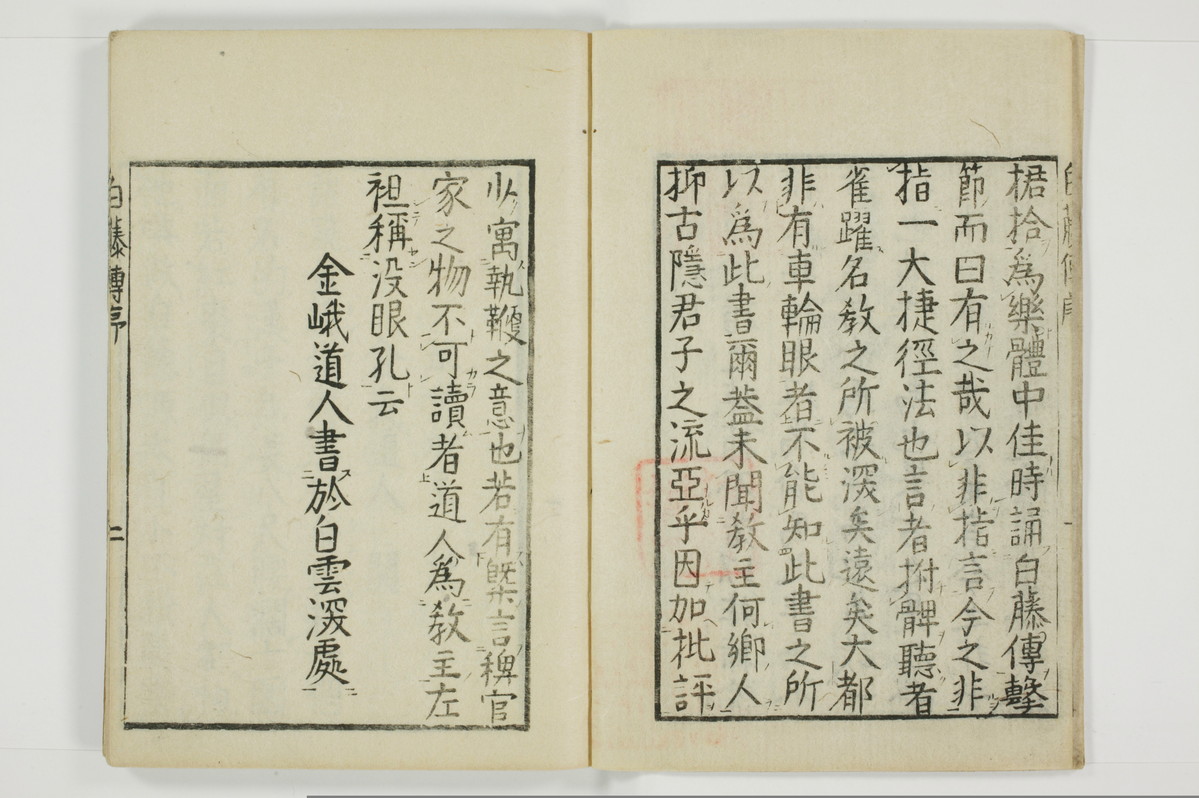 桾拾為樂體中佳時誦白藤傳擊
節而曰有之哉以非指言今之非
指一大捷徑法也言者拊髀聽者
雀躍名教之所被深矣遠矣大都
非有車輪眼者不能知此書之所
以為此書爾葢未聞教主何鄉人
抑古隱君子之流亞乎因加批評
少寓執鞭之意也若有槩言稗官
家之物不可讀者道人為教主左
袒稱没眼孔云
金峨道人書於白雲深處
白藤傳序
二